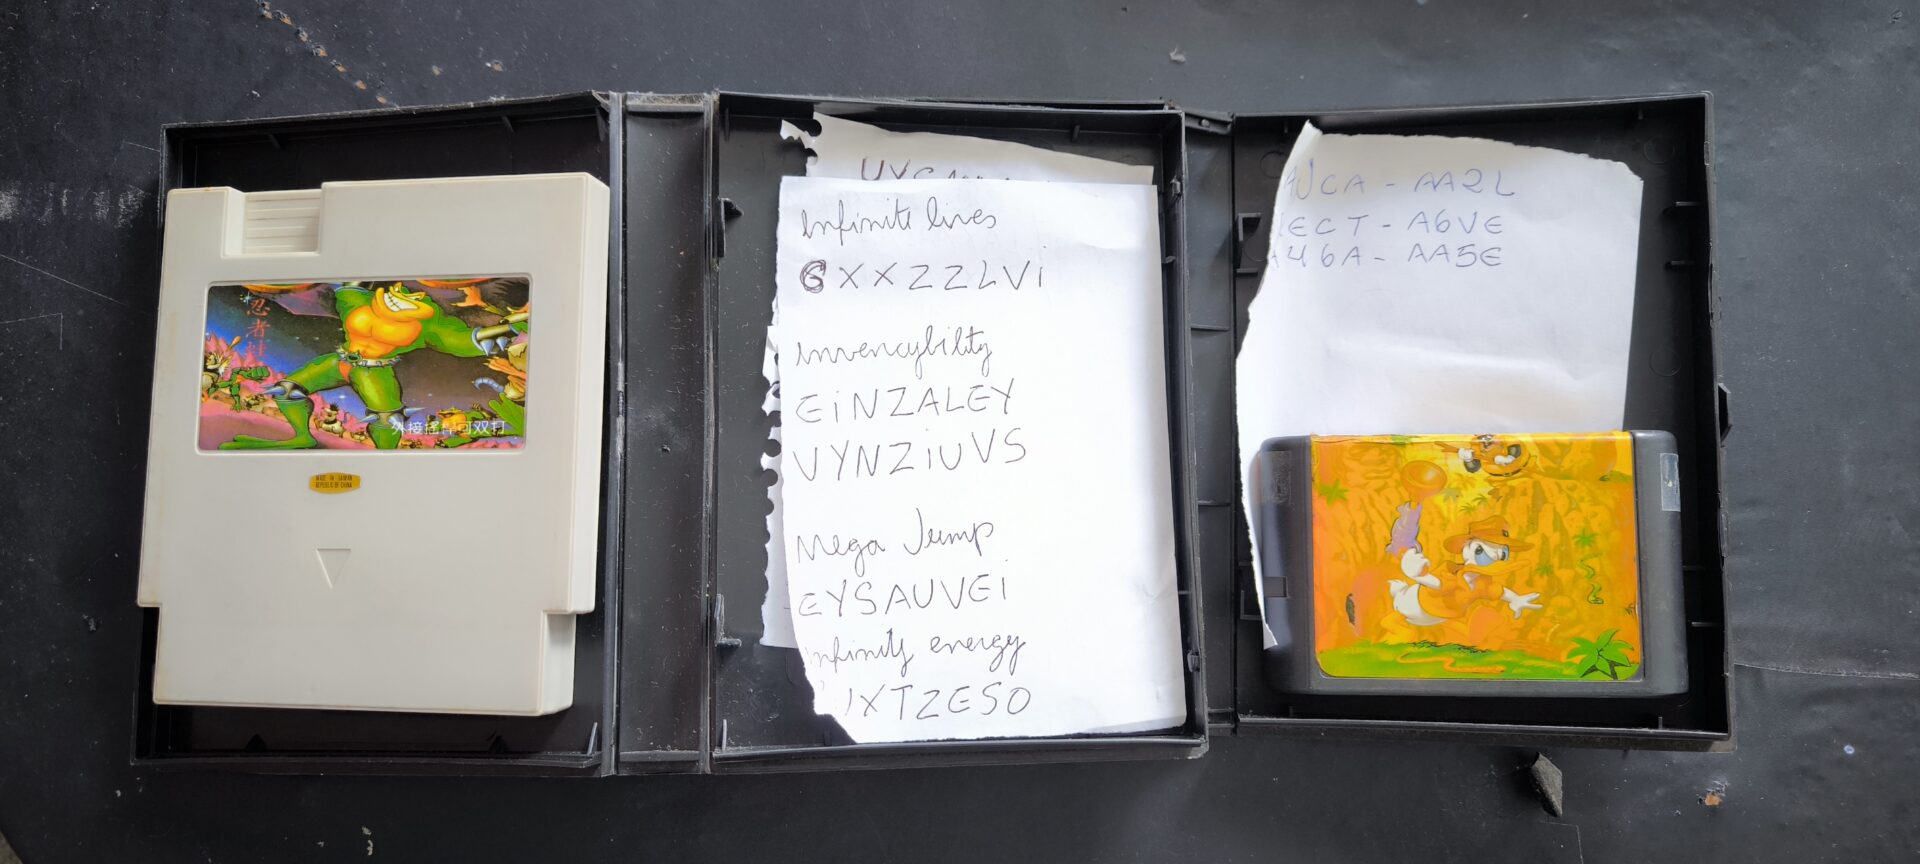 忍者蛙
外接摇杆可双打
MADE IN TAIWAN
REPUBLIC OF CHINA
Infinite lives
GXXZZLVi
invencybility
EiNZALEY
VYNZiUVS
Mega Jump
EYSAUVEi
infinity energy
XTZESO
UCA - AA2L
ECT - A6VE
46A - AA5E